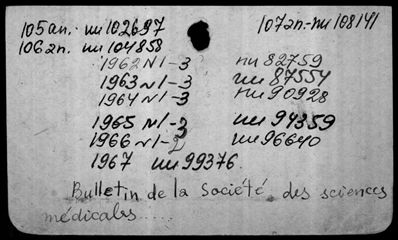 105an. nu 102697 107an.-nu 108141
106an. nu 104858
1962 N1-3 nu 82759
1963 N1-3 nu 87554
1964 N1-3 nu 90928
1965 N1-3 nu 94359
1966 N1-2 nu 96640
1967 nu 99376
Bulletin de la Société des sciences
médicales....